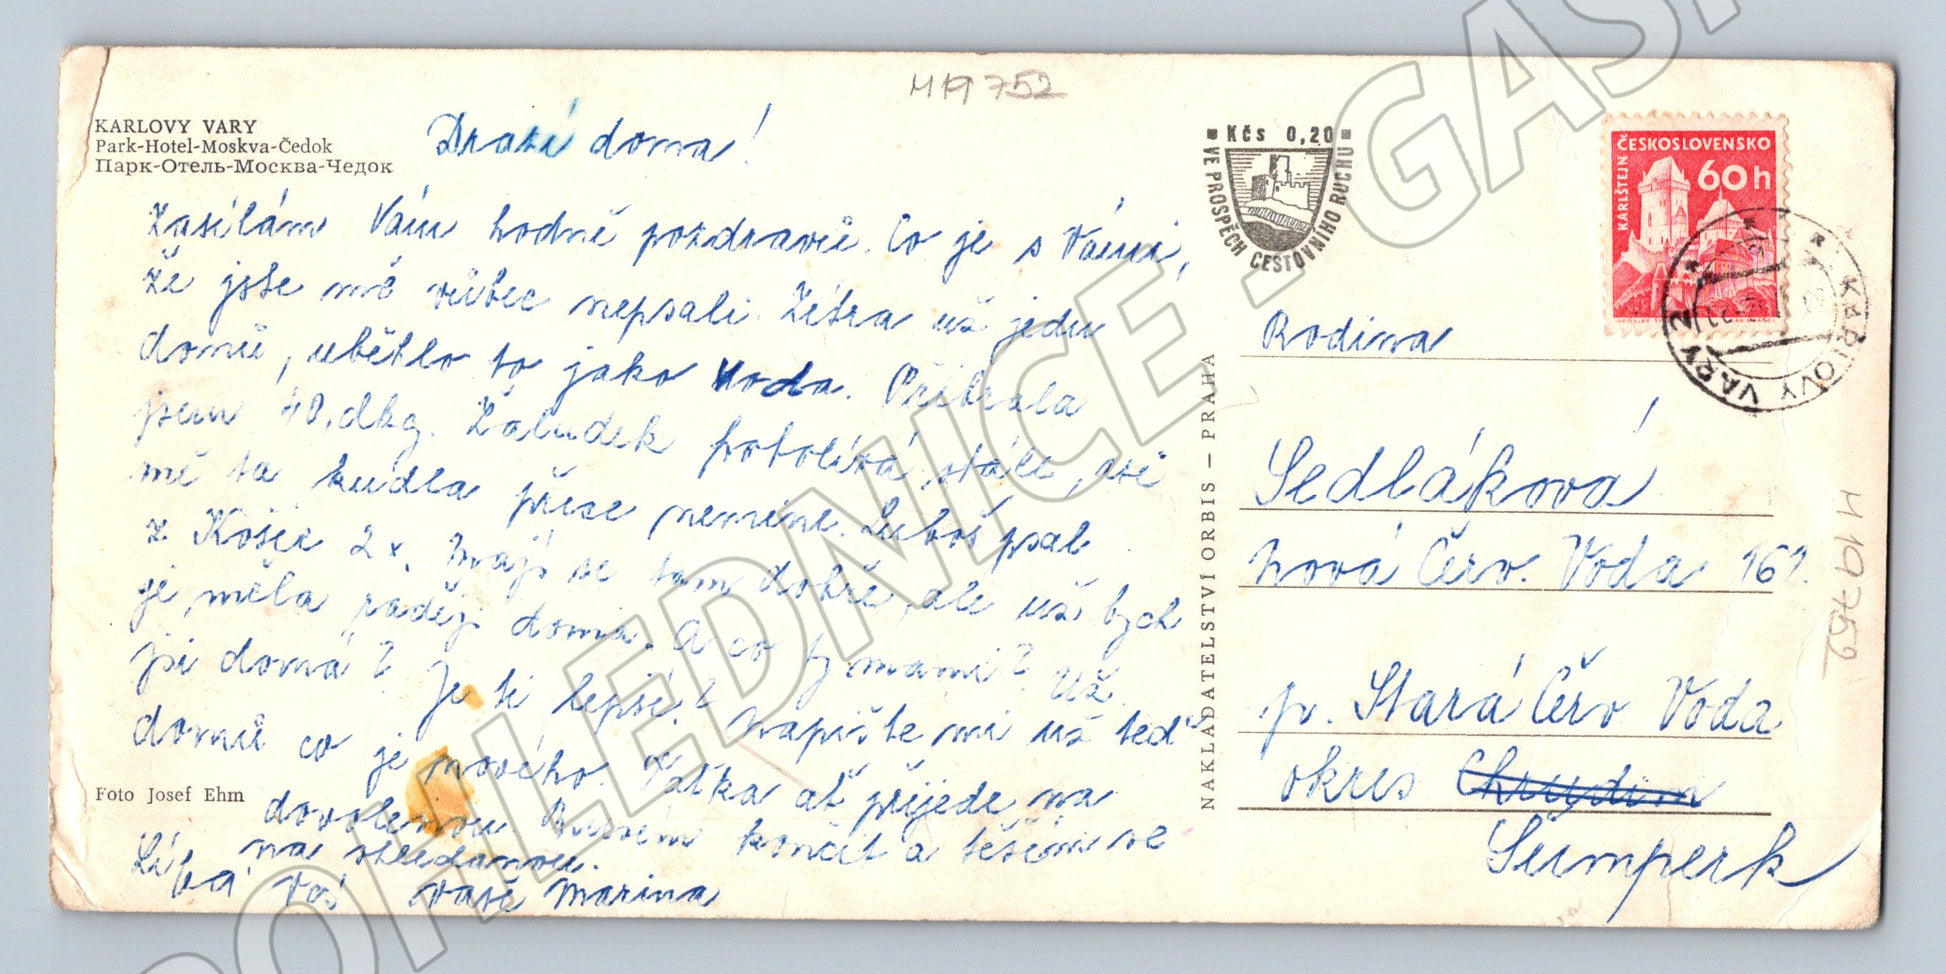 M19752
KARLOVY VARY
Park-Hotel-Moskva-Čedok
Парк-Отель-Москва-Чедок
Drazí doma!
Zasílám Vám hodně pozdravů. Co je s Vámi,
že jste mě vůbec nepsali. Zítra už jedu
domů, uběhlo to jako voda. Přibrala
jsem 40.dkg. Žaludek pobolívá stále, asi
mě ta kudla přece nemine. Luboš psal
z Košic 2x. Mají se tam dobře, ale už bych
je měla raději doma. A co ty mami? Už
jsi doma? Je ti lepší? Napište mi už teď
domů co je nového. Taťka ať přijede na
dovolenou. Musím končit a těším se
na shledanou.
Líbá Vás Vaše Marina
Foto Josef Ehm
NAKLADATELSTVÍ ORBIS — PRAHA
Kčs 0,20
VE PROSPĚCH CESTOVNÍHO RUCHU
ČESKOSLOVENSKO
KARLŠTEJN
60h
KARLOVY VARY 2
Rodina
Sedlákova
Nová Červ. Voda 161.
p. Stará Červ Voda
okres Chrudim
Šumperk
M19752
POHLEDNICE - GAS